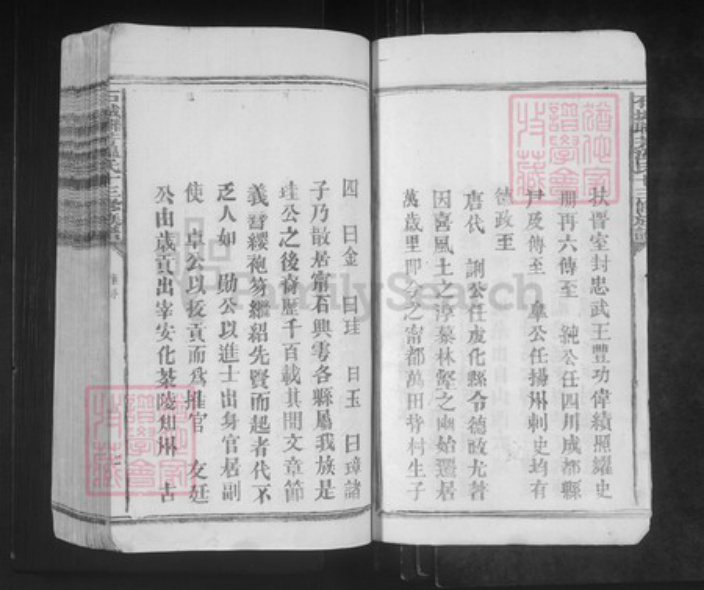 扶晉室封忠武王豐功偉績照耀史
冊再六傳至 純公任四川成都縣
尹及傳至 阜公任揚州刺史均有
德政至
唐代 詗公任虔化縣令德政尤著
因喜風土之淳慕林壑之幽始遷居
萬歲里即今之甯都萬田背村生子
四 曰金 曰珪 曰玉 曰璋諸
子乃散居甯石興雩各縣屬我族是
珪公之後裔歷千百載其間文章節
義簪纓袍笏繼紹先賢而起者代不
乏人如 勛公以進士出身官居副
使 卓公以拔貢而為推官 廷
公由歲貢出宰安化茶陵知州 古
FamilySearch